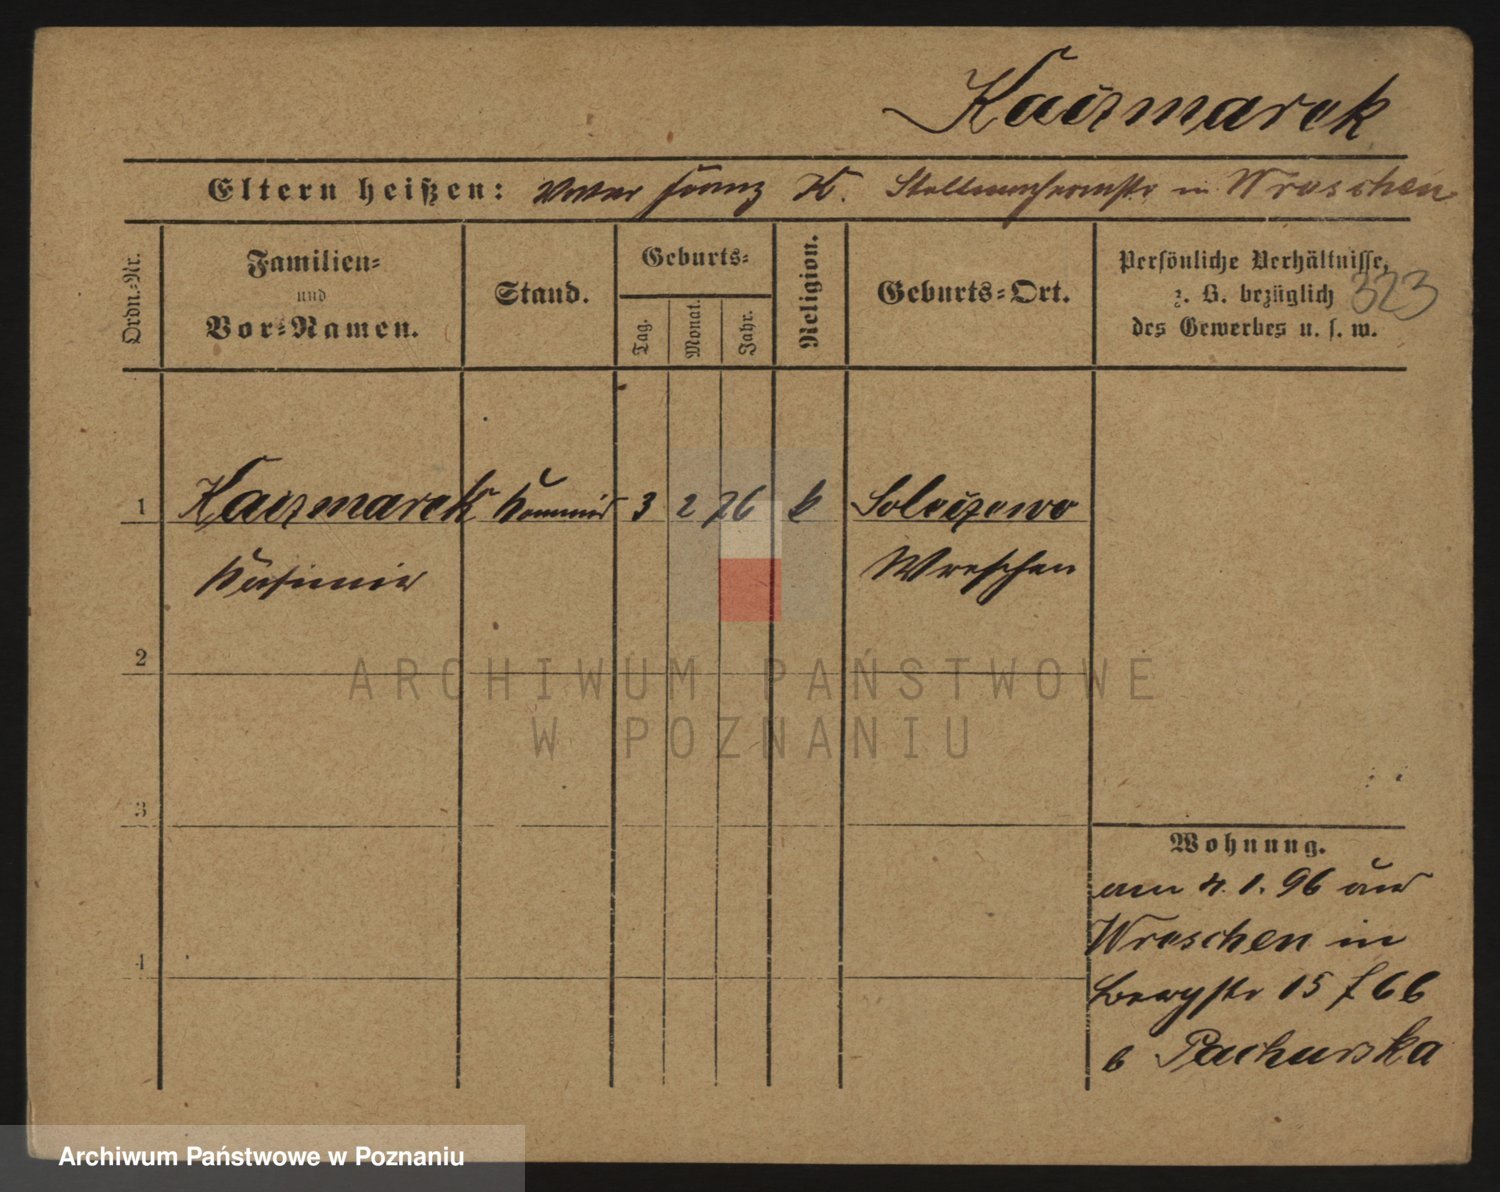 Kaczmarek
Eltern heißen: Vater Franz K. Stellmachermstr in Wreschen
Ordn.-Nr.
Familien-
und
Vor-Namen.
Stand.
Geburts-
Tag.
Monat.
Jahr.
Religion.
Geburts-Ort.
Persönliche Verhältnisse,
z. B. bezüglich
des Gewerbes u. s. w.
323
1 Kaczmarek Kommis 3 2 76 k
Kasimir Wreschen
2
ARCHIWUM PAŃSTWOWE
W POZNANIU
3
Wohnung.
am 4. 1. 96 aus
Wreschen in
Bergstr 15
b Pachurska
4
Archiwum Państwowe w Poznaniu